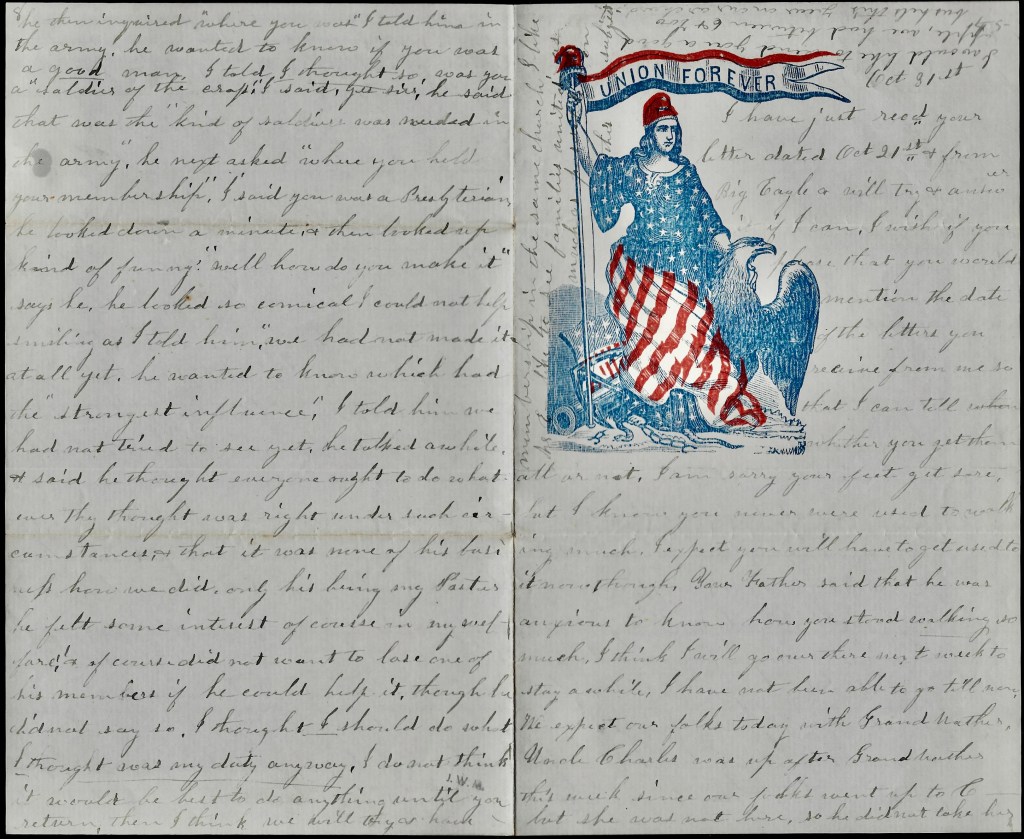 8
he then inquired "where you was" I told him in
the army. he wanted to know if you was
a good man, I told, I thought so, was you
a "soldier of the cross", I said, yes sir, he said
that was the "kind of soldiers was needed in
the army", he next asked "where you held
your membership", I said you was a Presbyterian,
he looked down a minute, & then looked up
kind of funny, "well how do you make it"
says he, he looked so comical I could not help
smiling as I told him, "we had not made it
at all yet, he wanted to know which had
the "strongest influence", I told him we
had not tried to see yet, he talked a while,
& said he thought everyone ought to do what-
ever they thought was right under such cir-
cumstances, & that it was none of his busi
ness how we did, only his being my Pastor
he felt some interest of course in my wel-
fare, & of course did not want to lose one of
his members if he could help it, though he
did not say so, I thought I should do what
I thought was my duty anyway, I do not think
J.W.M.
it would be best to do anything until you
return, then I think we will have
membership in the same church, I like
to see families united
much as in
other subject
I would like to send you a good
apple, we had between 6 &
bushels this year
UNION FOREVER
Oct 31st
I have just read your
letter dated Oct 21st & from
Big Eagle & will try & answer
it if I can, I wish if you
that you would
mention the date
of the letters you
receive from me so
that I can tell
whether you get them
all or not, I am sorry your feet get sore,
but I know you never were used to walk
ing much, I expect you will have to get used to
it now though, Your Father said that he was
anxious to know how you stood walking so
much, I think I will go over there next week to
stay a while, I have not been able to go till now,
We expect our folks today with Grand Mother,
Uncle Charles was up after Grandmother
this week since our folks went up to C
but she was not here, so he did not take her